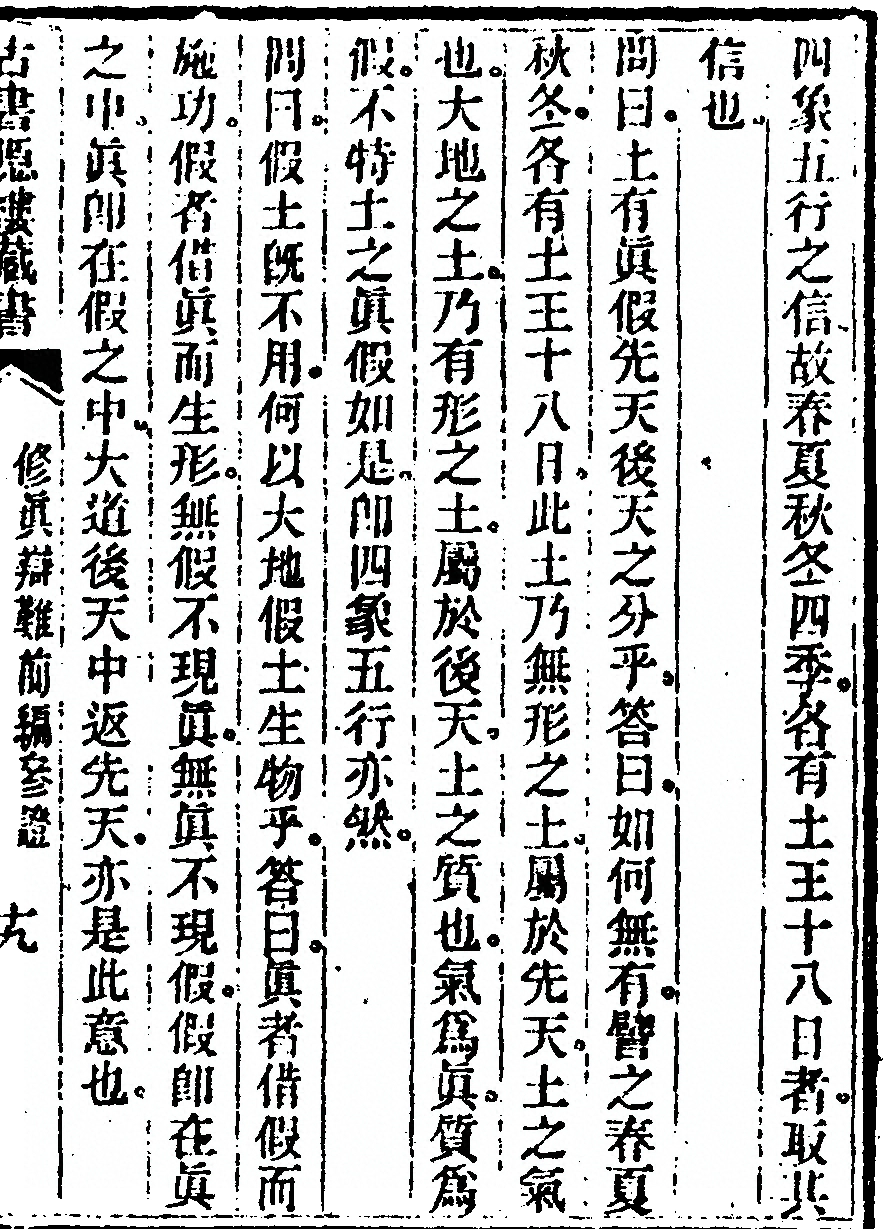 四象五行之信故春夏秋冬四季。各有土王十八日者。取其
信也。
問曰。土有眞假先天後天之分乎。答曰。如何無有。譬之春夏
秋冬。各有土王十八日。此土乃無形之土。屬於先天。土之氣
也。大地之土。乃有形之土。屬於後天。土之質也。氣爲眞。質爲
假。不特土之眞假如是。卽四象五行亦然。
問曰。假土旣不用。何以大地假土生物乎。答曰。眞者借假而
施功。假者借眞而生形。無假不現眞。無眞不現假。假卽在眞
之中。眞卽在假之中。大道後天中返先天。亦是此意也。
古書隱樓藏書
修眞辯難前編參證
十九